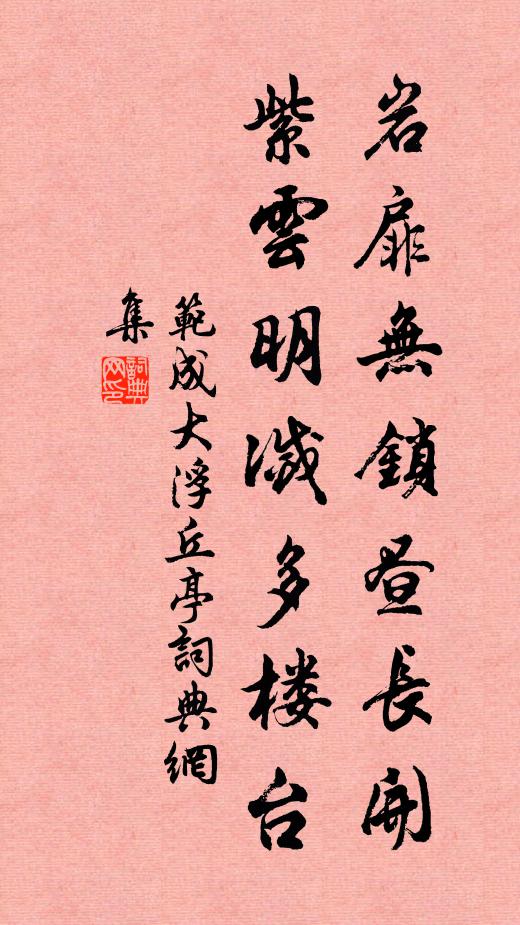 岩扉無鎖昼長開
紫雲明滅多楼台
範成大浮丘亭詞典網
集
詞典网印